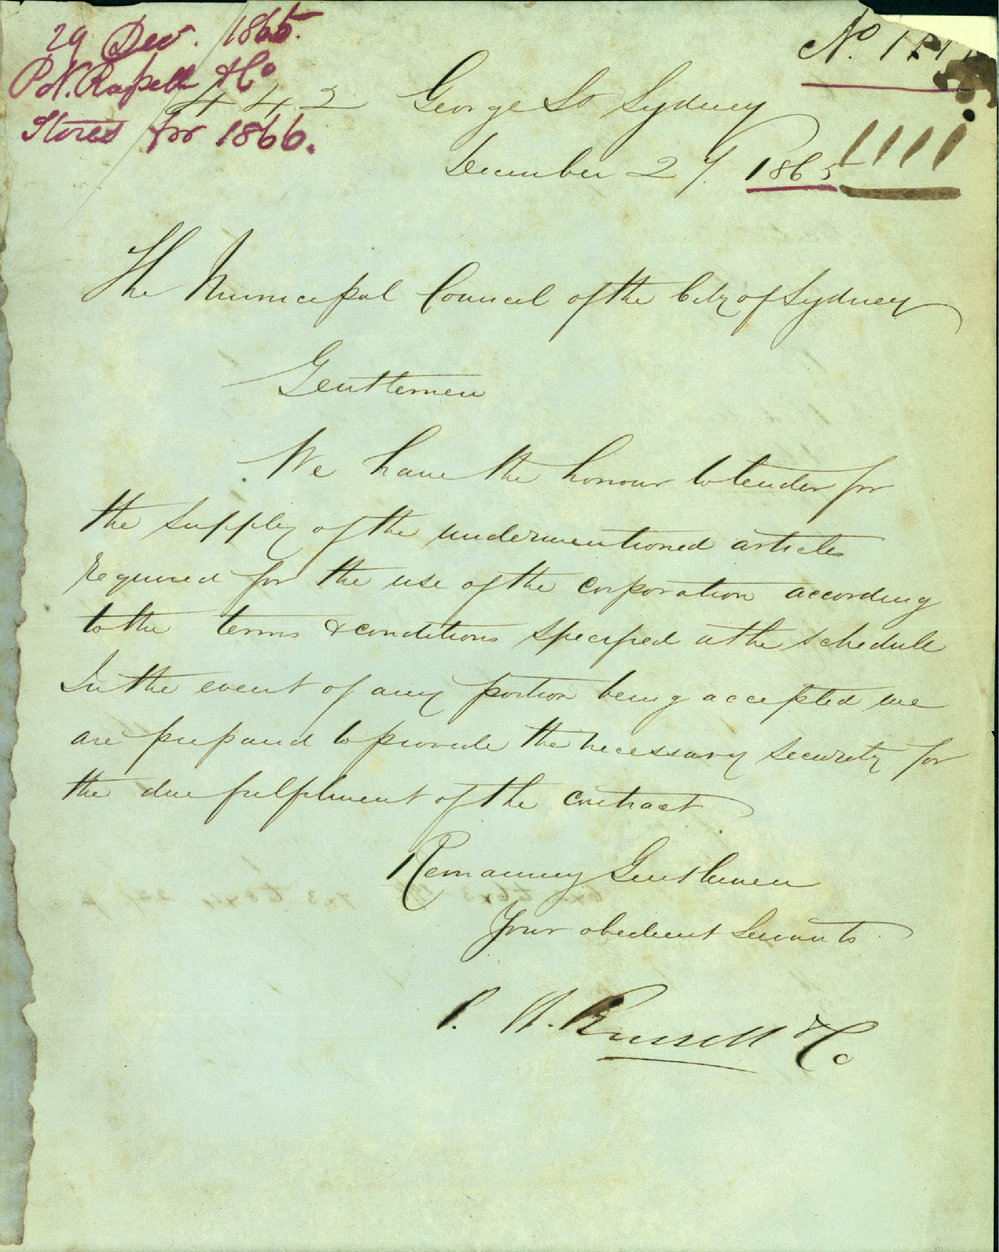 29 Dec. 1865.
P. N. Russell & Co
Stores for 1866.
No.
1111
442 George St Sydney
December 27. 1865
The Municipal Council of the City of Sydney
Gentlemen
We have the honour to tender for
the supply of the undermentioned articles
required for the use of the corporation according
to the terms & conditions specified in the schedule
In the event of any portion being accepted we
are prepared to provide the necessary security for
the due fulfilment of the contract
Remaining Gentlemen
Your obedient Servants
P. N. Russell & Co